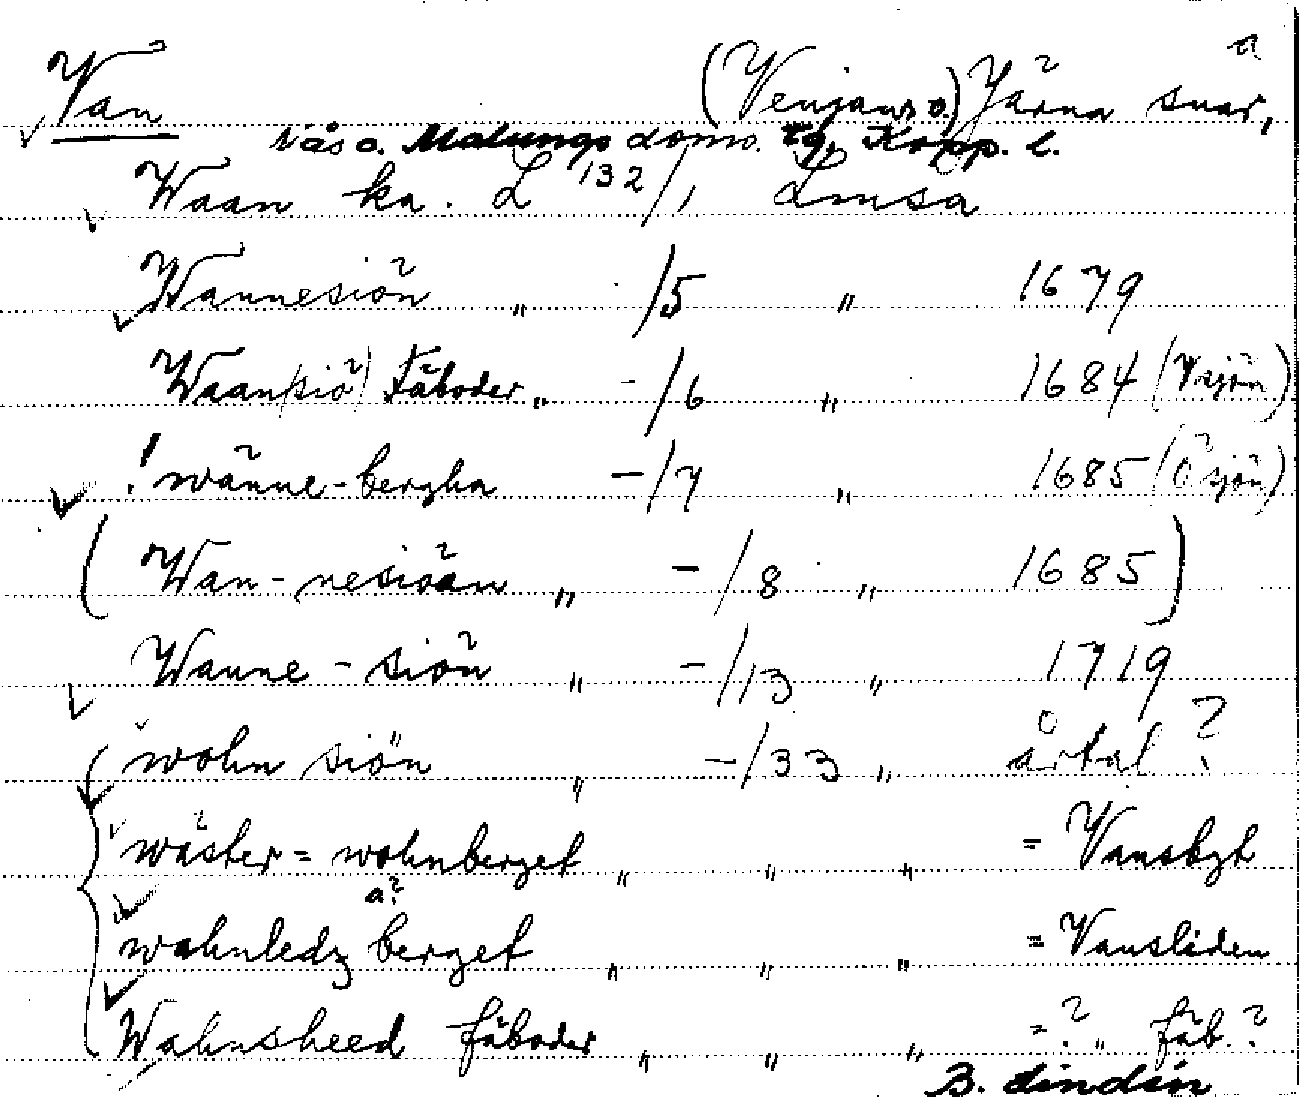 Van (Venjans o.) Järna snar, a
Nås o. Malungs doms. tg, Kopp. l.
Waan ka. L 132/1, Limsa
Wannesiön „ /5 „ 1679
Waan(siö) Fäboder „ -/6 „ 1684 (V sjön)
! wänne-bergha -/7 „ 1685 (Ö sjön)
(Wan-nesiöän „ -/8 „ 1685)
Wanne-siön „ -/13 „ 1719
wohn siön „ -/33 „ årtal?
wäster=wohnberget „ „ „ = Vansbgt
a?
wahnledz berget „ „ „ = Vansliden
Wahnsheed fäboder „ „ „ =? „ fäb.?
B. Lindén